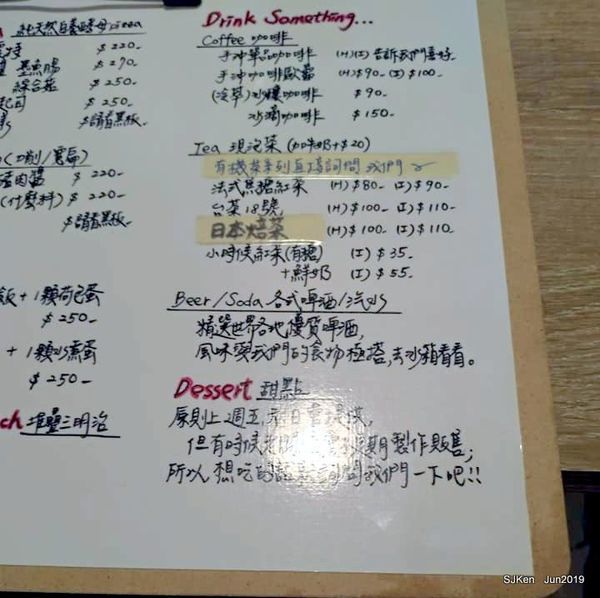 純天然自養酵母pizza
$220-
墨魚腸 $290-
綜合菇 $250-
起司 $250-
$請看黑板
(切削/寬扁)
豬肉醬 $220-
(什麼料) $220-
$請看黑板
飯+1顆荷包蛋
$250-
+1顆水煮蛋
$250-
ch 堆疊三明治
Drink Something...
Coffee 咖啡
手沖單品咖啡 (H)(I) 告訴我們喜好
手沖咖啡歐蕾 (H)$90- (I)$100-
(冷萃)冰釀咖啡 $90-
冰滴咖啡 $150-
Tea 現泡茶 (加鮮奶+$20)
有機茶系列直接詢問我們
法式焦糖紅茶 (H)$80- (I)$90-
台茶18號 (H)$100- (I)$110-
日本焙茶 (H)$100- (I)$110-
小時候紅茶(有糖) (I)$35-
+鮮奶 (I)$55-
Beer/Soda 各式啤酒/汽水
精選世界各地優質啤酒,
風味與我們的食物極搭,去冰箱看看。
Dessert 甜點
原則上週五、六、日會提供,
但有時候 期製作販售;
所以想吃的 詢問我們一下吧!!
SJKen Jun2019